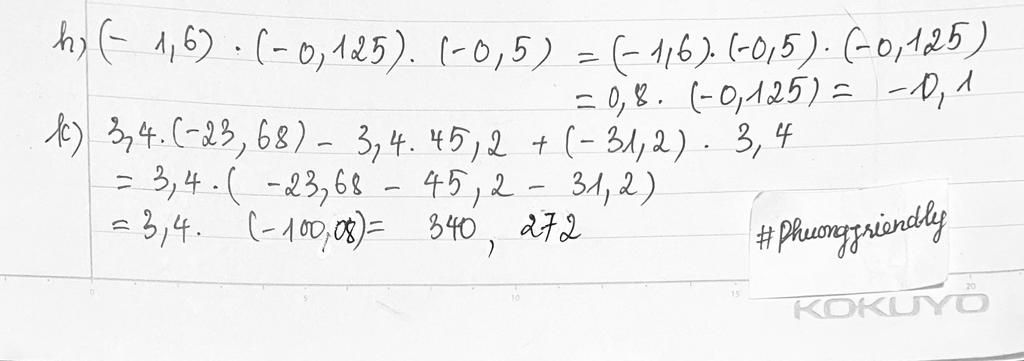 h) (- 1,6) . (-0,125). (-0,5) = (-1,6). (-0,5). (-0,125)
= 0,8. (-0,125) = -0,1
k) 3,4.(-23,68) - 3,4. 45,2 + (-31,2) . 3,4
= 3,4.( -23,68 - 45,2 - 31,2)
= 3,4. (-100,08)= 340, 272
#Phuongfriendly
0 5 10 15 20
KOKUYO